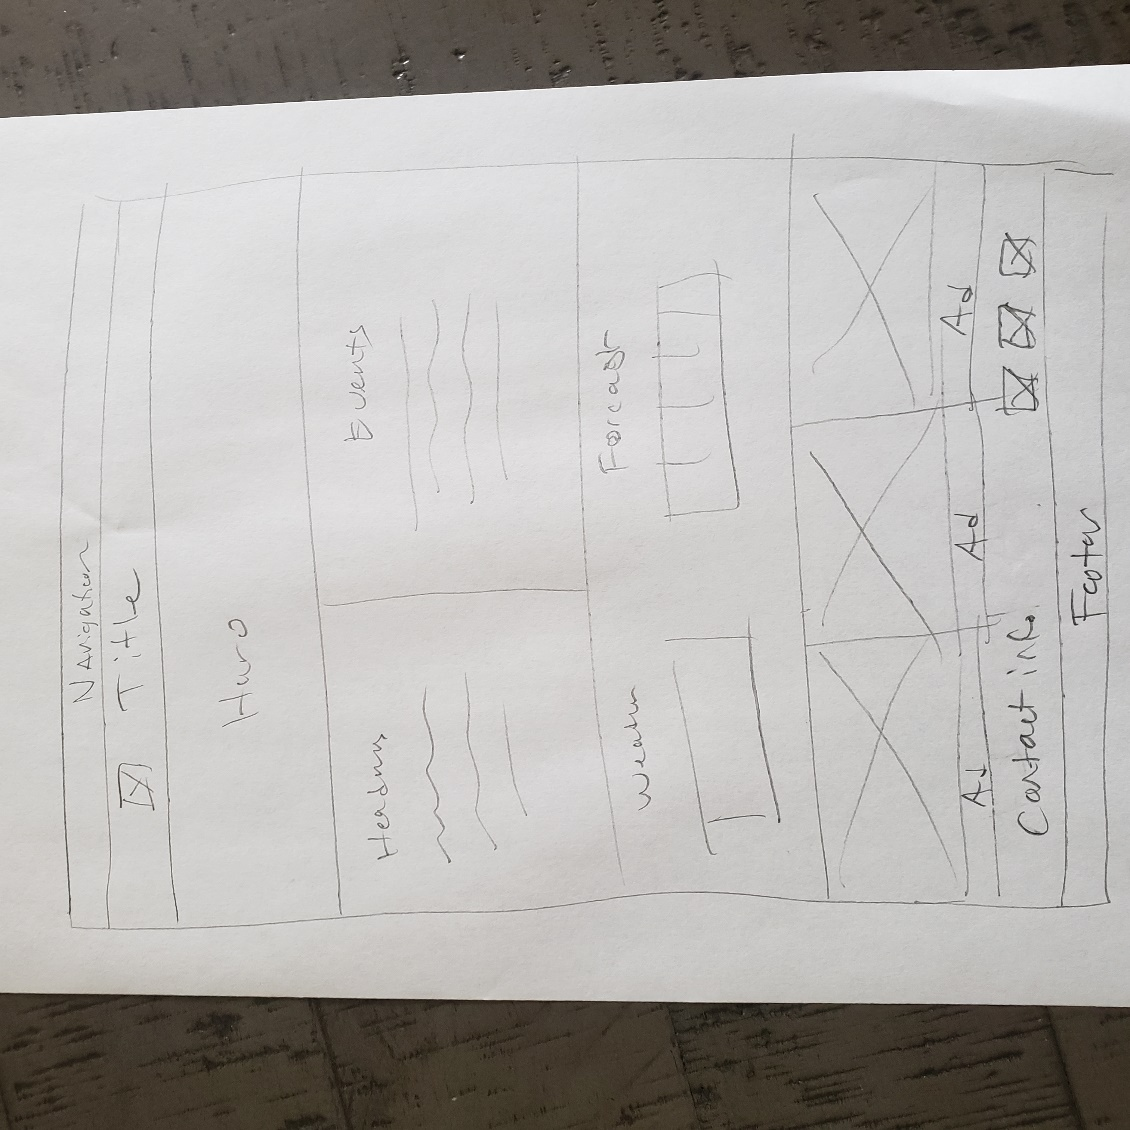 Navigation
Title
Hero
Headlines Events
Weather Forecast
Ad Ad Ad
Contact info.
Footer